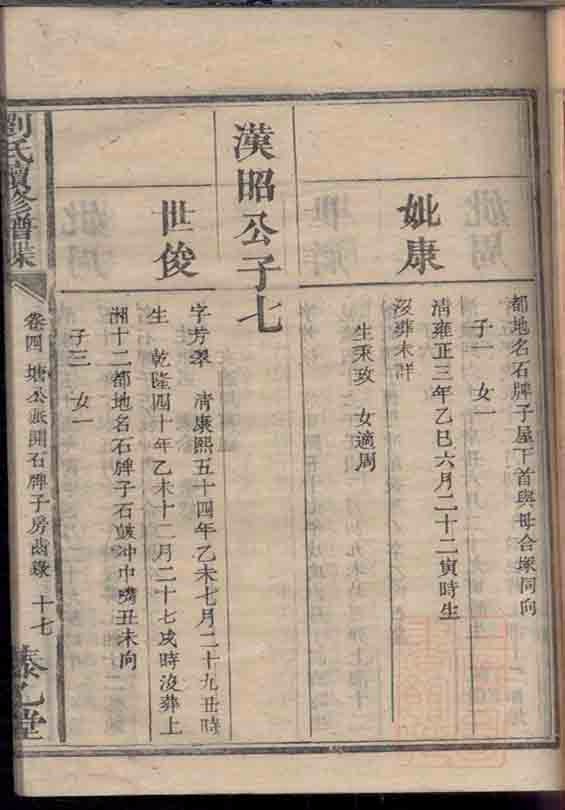 都地名石牌子屋下首與母合塚同向
子一　女一
妣康
清雍正三年乙巳六月二十二寅時生
沒葬未詳
生秉玫　女適周
漢昭公子七
世俊
字芳翠　清康熙五十四年乙未七月二十九丑時
生　乾隆四十年乙未十二月二十七戌時沒葬上
湘十二都地名石牌子石皷冲中嘴丑未向
子三　女一
劉氏續修譜牒
卷四　塘公派開石牌子房齒錄　十七
乙堂